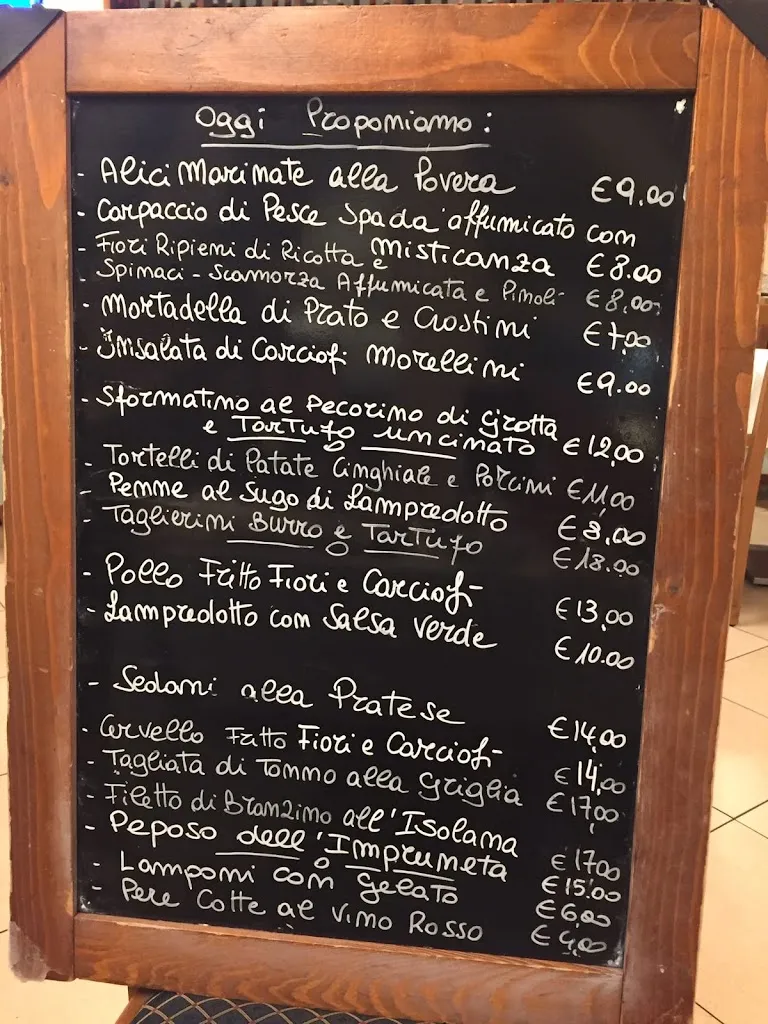 Oggi Proponiamo:
- Alici Marinate alla Povera €9.00
- Carpaccio di Pesce Spada affumicato con
misticanza €8.00
- Fiori Ripieni di Ricotta e
Spinaci - Scamorza Affumicata e Pinoli €8,00
- Mortadella di Prato e Crostini €7,00
- Insalata di Carciofi Morellini €9.00
- Sformatino al Pecorino di Grotta
e Tartufo uncinato €12,00
- Tortelli di Patate Cinghiale e Porcini €11,00
- Penne al Sugo di Lampredotto €8,00
- Taglierini Burro e Tartufo €18.00
- Pollo Fritto Fiori e Carciofi €13,00
- Lampredotto con Salsa Verde €10.00
- Sedani alla Pratese €14,00
- Cervello Fritto Fiori e Carciofi €14,00
- Tagliata di Tonno alla Griglia €17,00
- Filetto di Branzino all'Isolana €17,00
- Peposo dell'Impruneta €15.00
- Lamponi con gelato €6,00
- Pere Cotte al Vino Rosso €4,00